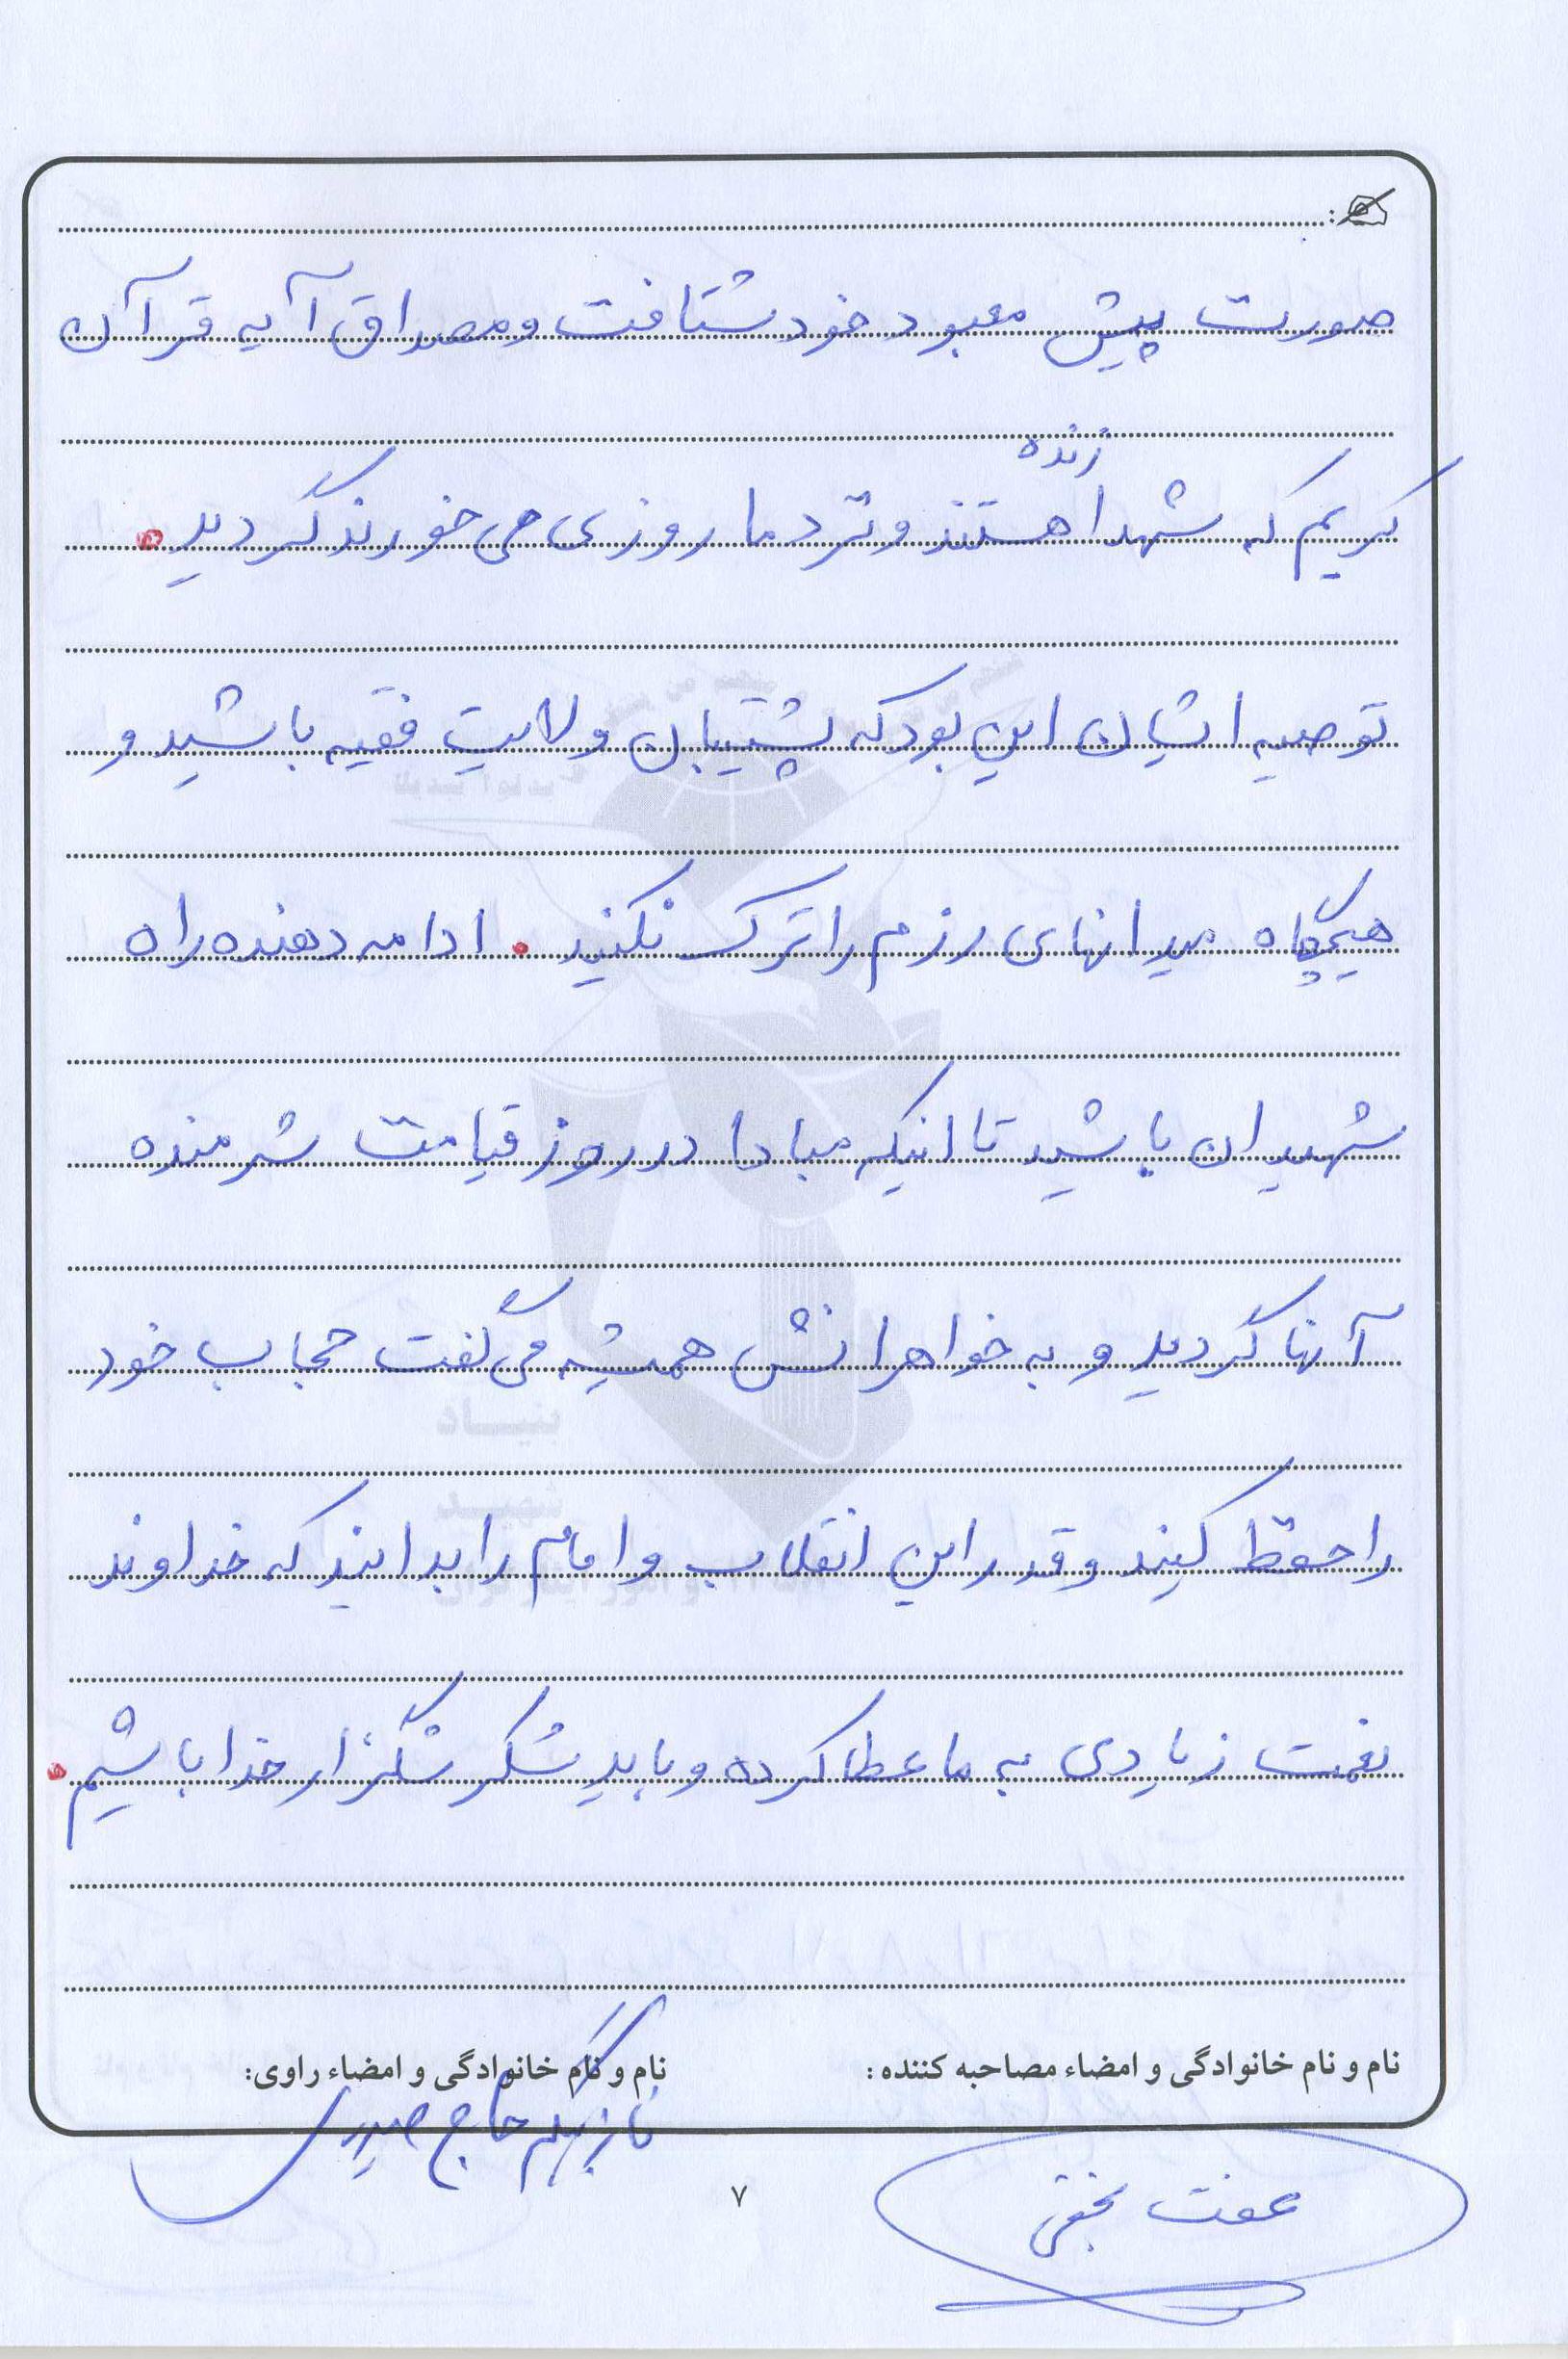 صورت پیش معبود خود شتافت و مصداق آیه قرآن
زنده
کریم که شهدا هستند و نزد ما روزی می خورند گردید.
توصیه ایشان این بود که پشتیبان ولایت فقیه باشید و
هیچگاه میدانهای رزم را ترک نکنید. ادامه دهنده راه
شهیدان باشید تا اینکه مبادا در روز قیامت شرمنده
آنها گردید و به خواهرانش همیشه می گفت حجاب خود
را حفظ کنید و قدر این انقلاب و امام را بدانید که خداوند
نعمت زیادی به ما عطا کرده و باید شکر شکرگزار خدا باشیم.
نام و نام خانوادگی و امضاء مصاحبه کننده: نام و نام خانوادگی و امضاء راوی:
نازبیگم حاج صدری
عفت
۷